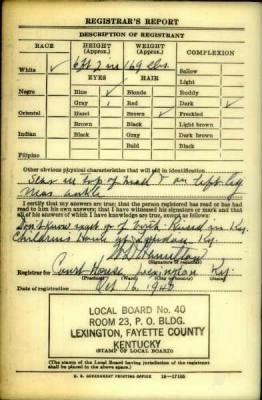 REGISTRAR'S REPORT
DESCRIPTION OF REGISTRANT
RACE HEIGHT (Approx.) WEIGHT (Approx.) COMPLEXION
White ✓ 6 ft 2 in 169 lbs. Sallow
EYES HAIR Light
Negro Blue ✓ Blonde Ruddy
Gray Red Dark ✓
Oriental Hazel Brown ✓ Freckled
Brown Black Light brown
Indian Black Gray Dark brown
Bald Black
Filipino
Other obvious physical characteristics that will aid in identification
Scar on top of head & on left leg
near ankle
I certify that my answers are true; that the person registered has read or has had
read to him his own answers; that I have witnessed his signature or mark and that
all of his answers of which I have knowledge are true, except as follows:
Don't know exact yr of birth. Raised in Ky.
Childrens Home at Lyndon Ky.
Hamilton
(Signature of registrar)
Registrar for Court House Lexington Ky.
(Precinct) (State)
Date of registration Oct 16 1940
LOCAL BOARD No. 40
ROOM 23, P. O. BLDG.
LEXINGTON, FAYETTE COUNTY
KENTUCKY
(STAMP OF LOCAL BOARD)
(The stamp of the Local Board having jurisdiction of the registrant
shall be placed in the above space.)
U. S. GOVERNMENT PRINTING OFFICE 16—17105